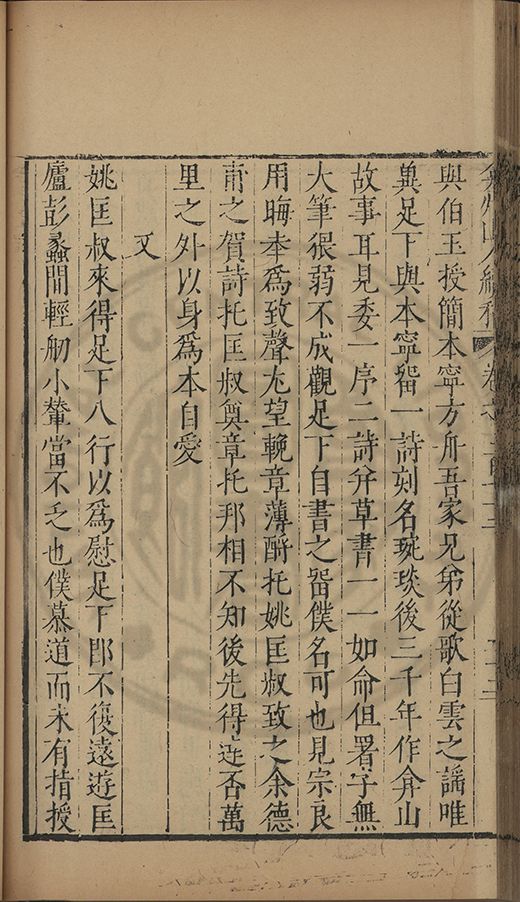 弇州山人續稿 卷之二百
與伯玉授簡本寧方舟吾家兄弟從歌白雲之謠唯
冀足下與本寧留一詩刻名琬琰後三千年作弇山
故事耳見委一序二詩并草書一一如命但署字無
大筆很弱不成觀足下自書之留僕名可也見宗良
用晦奉爲致聲尤望輓章薄酹托姚匡叔致之余德
甫之賀詩托匡叔奠章托邦相不知後先得達否萬
里之外以身爲本自愛
又
姚匡叔來得足下八行以爲慰足下卽不復遠遊匡
廬彭蠡間輕舠小輦當不乏也僕慕道而未有指授